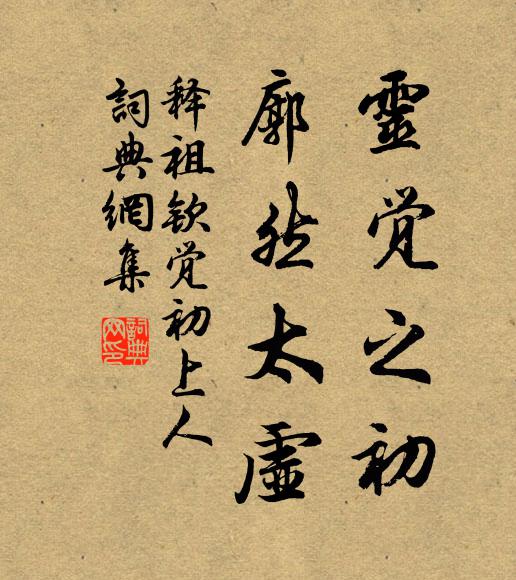 靈觉之初
廓然太虛
释祖钦觉初上人
詞典網集
詞典
网印